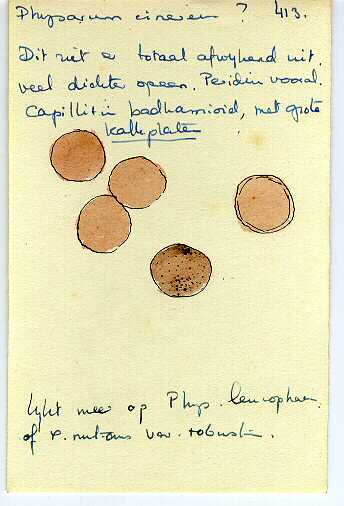 Physarum cinereum ? 413.
Dit ziet er totaal afwijkend uit,
veel dichter opeen. Peridium vooral.
Capillitium badhamioid, met grote
kalkplaten
Lijkt meer op Phys. leucophaeum
of P. nutans var. robustum.